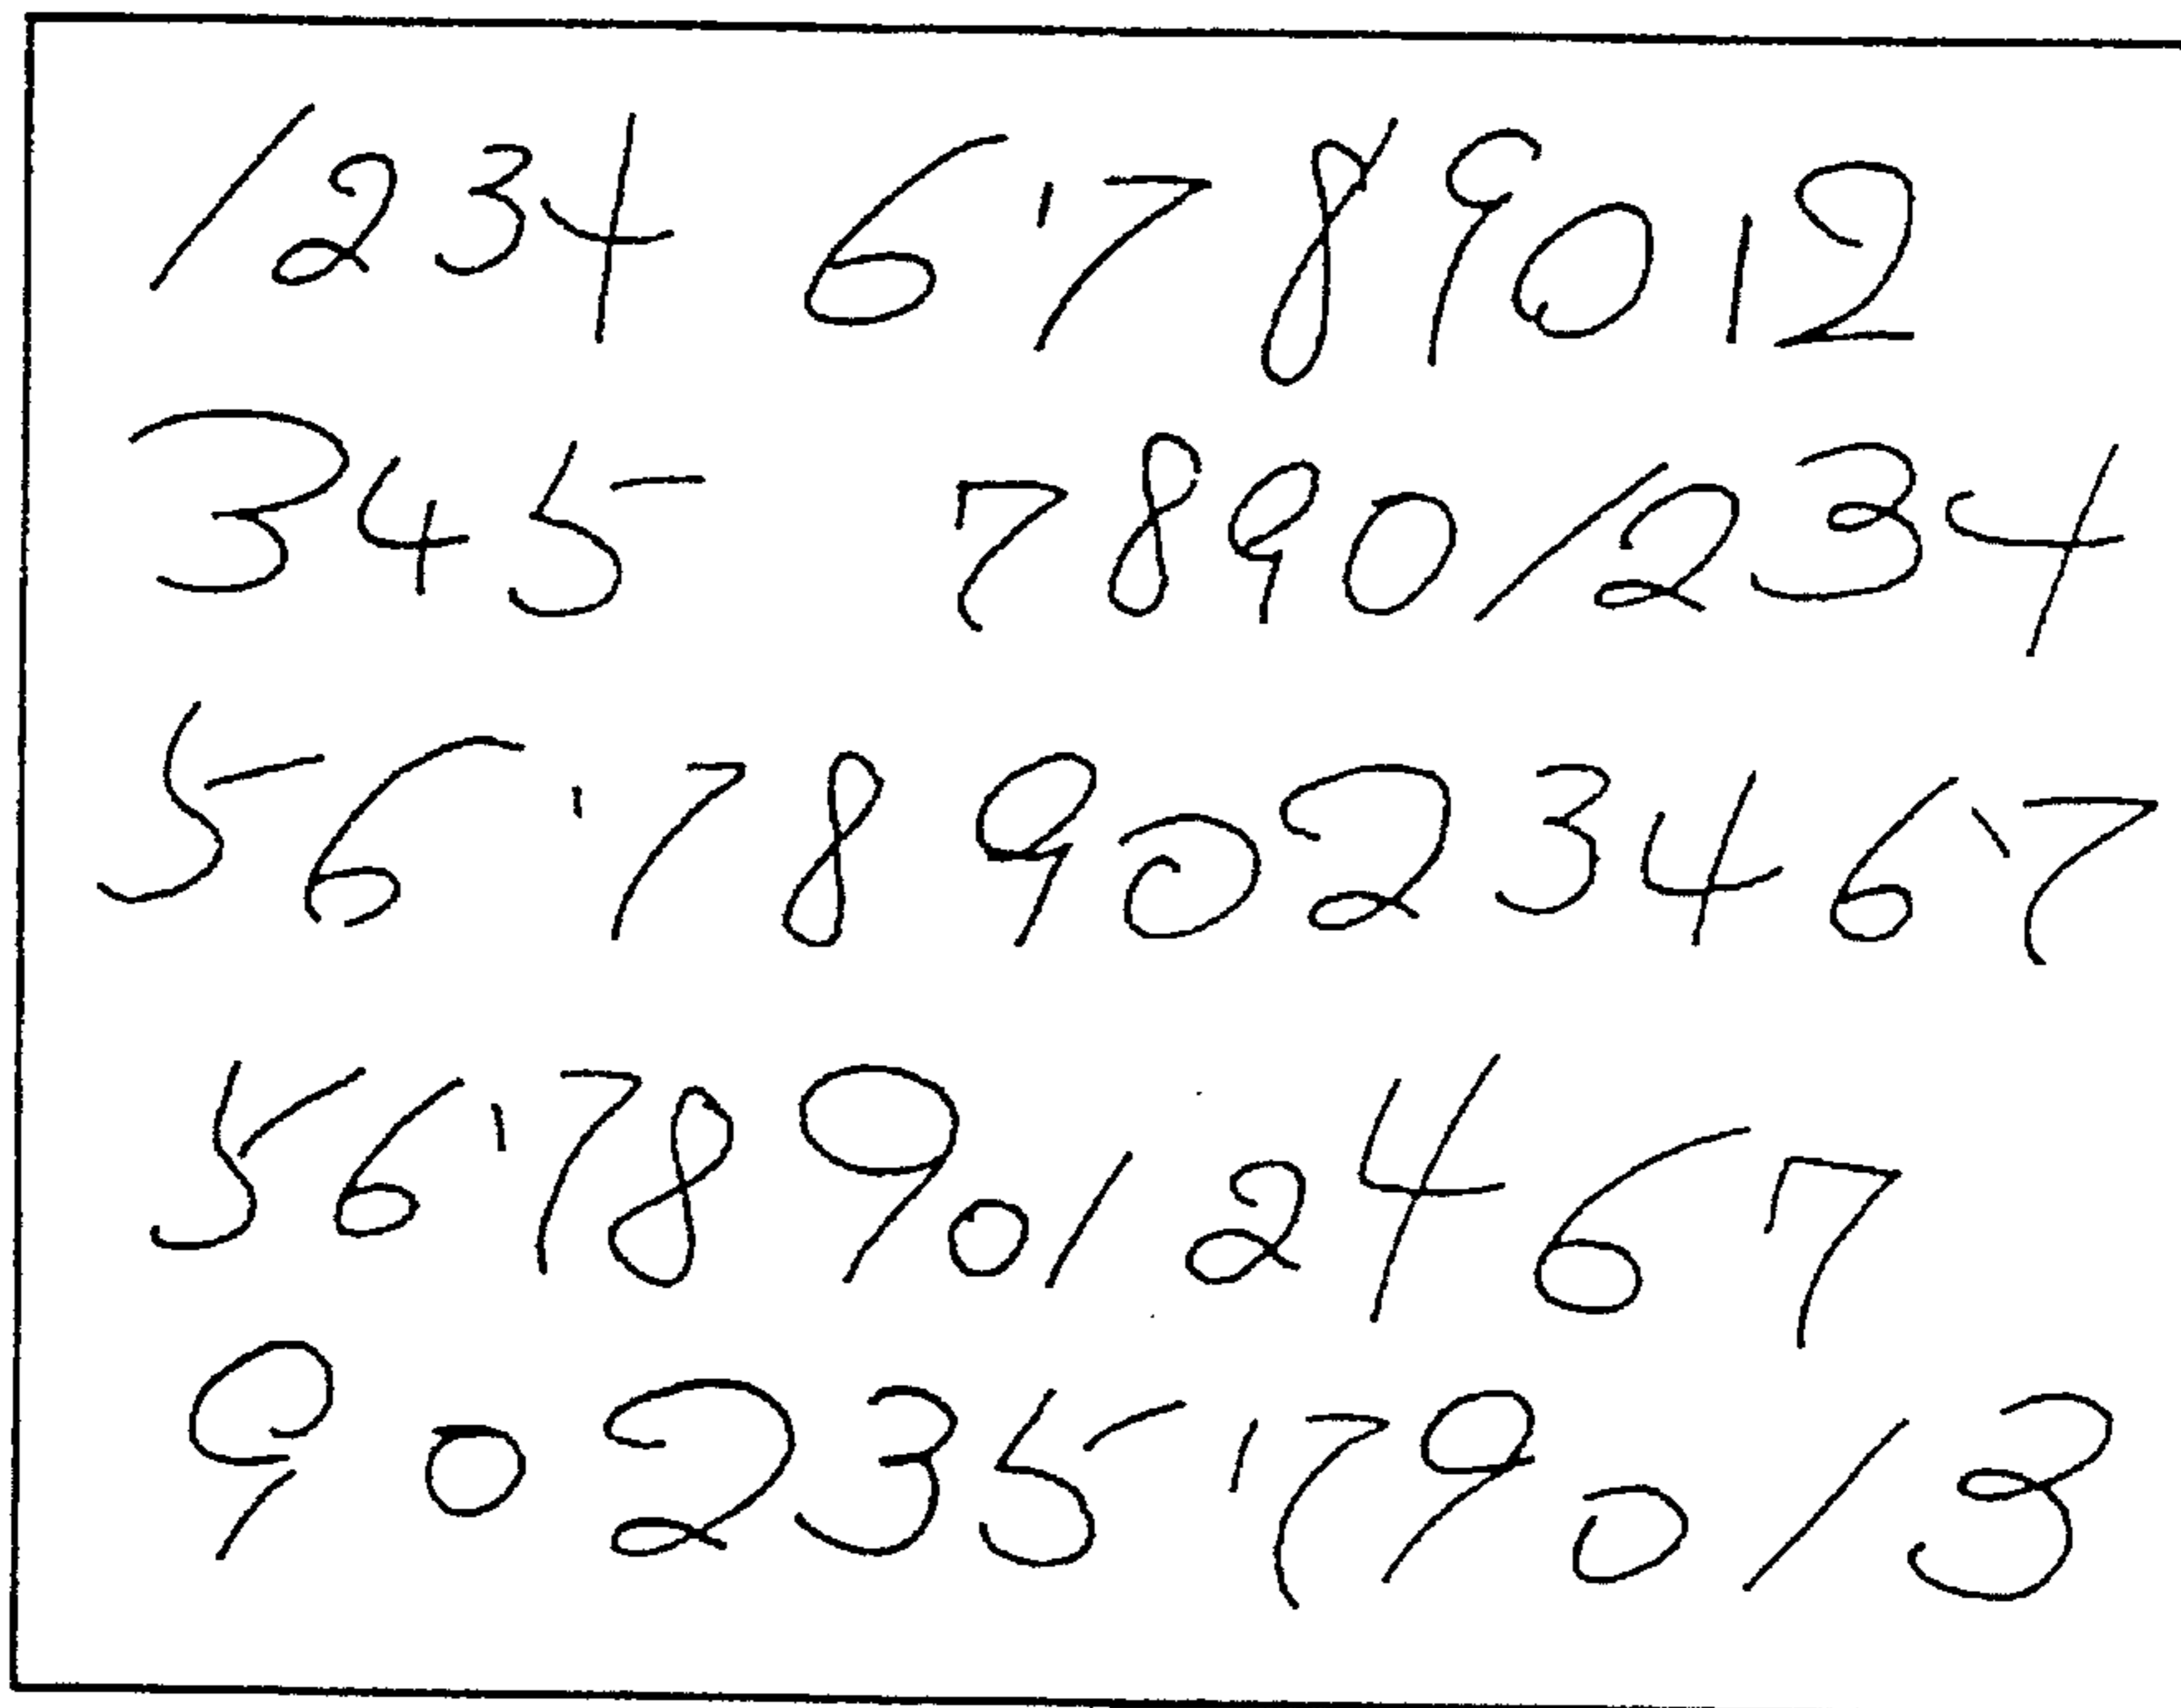 1234 6789012
345 7890/234
56789023467
56789012467
9023579013